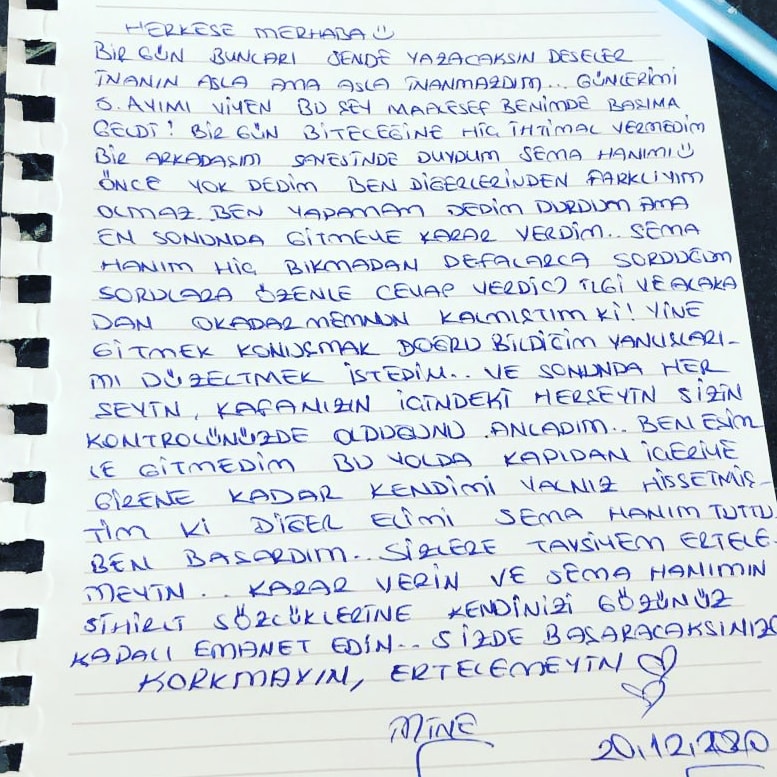 HERKESE MERHABA ☺
BİR GÜN BUNLARI SENDE YAZACAKSIN DESELER
İNANIN ASLA AMA ASLA İNANMAZDIM... GÜNLERİMİ
5. AYIMI YİYEN BU ŞEY MAALESEF BENİMDE BAŞIMA
GELDİ! BİR GÜN BİTECEĞİNE HİÇ İHTİMAL VERMEDİM
BİR ARKADAŞIM SAYESİNDE DUYDUM SEMA HANIMI ☺
ÖNCE YOK DEDİM BEN DİĞERLERİNDEN FARKLIYIM
OLMAZ. BEN YAPAMAM DEDİM DURDUM AMA
EN SONUNDA GİTMEYE KARAR VERDİM.. SEMA
HANIM HİÇ BIKMADAN DEFALARCA SORDUĞUM
SORULARA ÖZENLE CEVAP VERDİ İLGİ VE ALAKA
DAN OKADAR MEMNUN KALMIŞTIM Kİ! YİNE
GİTMEK KONUŞMAK DOĞRU BİLDİĞİM YANLIŞLARI-
MI DÜZELTMEK İSTEDİM.. VE SONUNDA HER
ŞEYİN, KAFANIZIN İÇİNDEKİ HERŞEYİN SİZİN
KONTROLÜNÜZDE OLDUĞUNU ANLADIM.. BEN EŞİM
LE GİTMEDİM BU YOLDA KAPIDAN İÇERİYE
GİRENE KADAR KENDİMİ YALNIZ HİSSETMİŞ-
TİM Kİ DİĞER ELİMİ SEMA HANIM TUTTU
BEN BAŞARDIM.. SİZLERE TAVSİYEM ERTELE-
MEYİN.. KARAR VERİN VE SEMA HANIMIN
SİHİRLİ SÖZCÜKLERİNE KENDİNİZİ GÖZÜNÜZ
KAPALI EMANET EDİN.. SİZDE BAŞARACAKSINIZ
KORKMAYIN, ERTELEMEYİN ♡
MİNE
20.12.2020